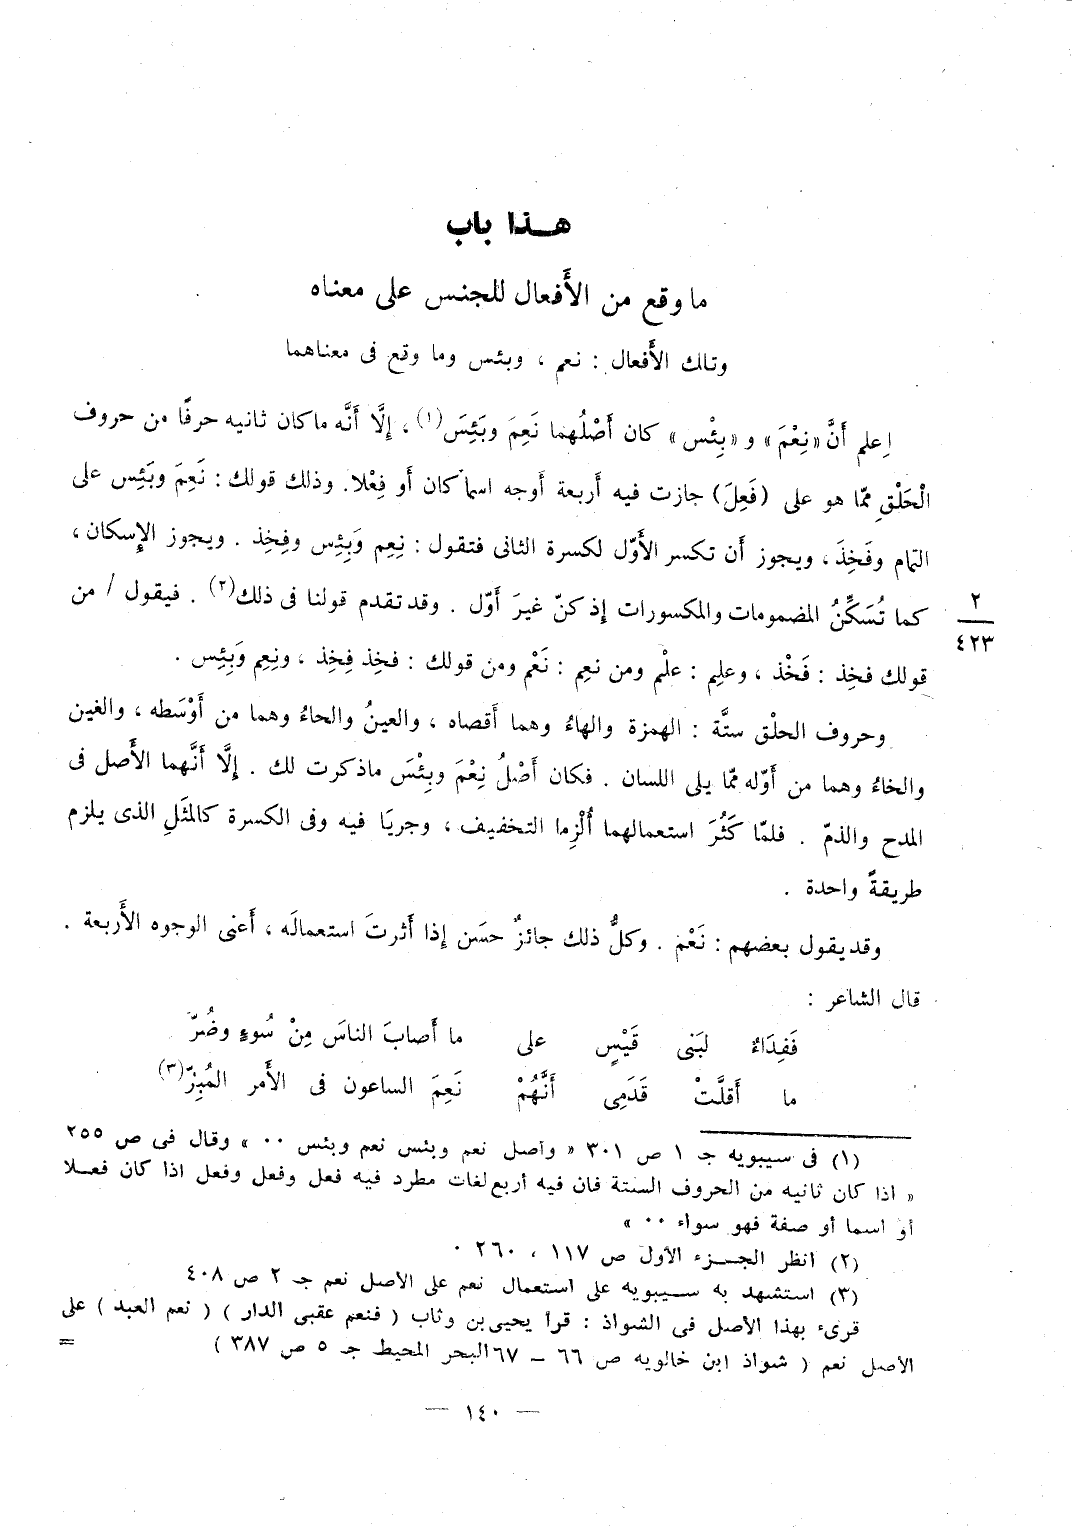 هـــذا باب
ما وقع من الأَفعال للجنس على معناه
وتلك الأَفعال : نعم ، وبئس وما وقع فى معناهما
اِعلم أَنَّ «نِعْمَ» و «بِئْس» كان أَصْلُهما نَعِمَ وبَئِسَ(١) ، إِلَّا أَنَّه ما كان ثانيه حرفًا من حروف
الْحَلْقِ ممّا هو على (فَعِلَ) جازت فيه أَربعة أَوجه اسما كان أَو فِعْلا. وذلك قولك : نَعِمَ وبَئِس على
التمام وفَخِذَ ، ويجوز أَن تكسر الأَوّل لكسرة الثانى فتقول : نِعِم وَبِئِس وفِخِذ . ويجوز الإِسكان ،
كما تُسَكِّنُ المضمومات والمكسورات إِذ كنّ غيرَ أَوّل . وقد تقدم قولنا فى ذلك(٢) . فيقول / من
٢
٤٢٣
قولك فخِذ : فَخْذ ، وعلِم : علْم ومن نعِم : نَعْم ومن قولك : فخِذ فِخِذ ، ونِعِم وَبِئِس .
وحروف الحلْق ستَّة : الهمزة والهاءُ وهما أَقصاه ، والعينُ والحاءُ وهما من أَوْسَطه ، والغين
والخاءُ وهما من أَوّله ممّا يلى اللسان . فكان أَصْلُ نِعْمَ وبِئْسَ ما ذكرت لك . إِلَّا أَنَّهما الأَصل فى
المدح والذمّ . فلمّا كَثُرَ استعمالهما أُلْزِما التخفيف ، وجريَا فيه وفى الكسرة كالمثَلِ الذى يلزم
طريقةً واحدة .
وقد يقول بعضهم : نَعْمَ . وكلُّ ذلك جائزٌ حسَن إِذا أَثرتَ استعمالَه ، أَعنى الوجوه الأَربعة .
قال الشاعر :
فَفِدَاءٌ لبَنى قَيْسٍ على ما أَصابَ الناسَ مِنْ سُوءٍ وضُرّ
ما أَقلَّتْ قَدَمِى أَنَّهُمْ نَعِمَ الساعون فى الأَمر المُبِرّ(٣)
(١) فى سيبويه جـ ١ ص ٣٠١ « وأصل نعم وبئس نعم وبئس ٠٠ » وقال فى ص ٢٥٥
« اذا كان ثانيه من الحروف الستة فان فيه أربع لغات مطرد فيه فعل وفعل وفعل اذا كان فعـلا
أو اسما أو صفة فهو سواء ٠٠ »
(٢) انظر الجـزء الأول ص ١١٧ ، ٢٦٠ ٠
(٣) استشهد به سـيبويه على استعمال نعم على الأصل نعم جـ ٢ ص ٤٠٨
قرىء بهذا الأصل فى الشواذ : قرأ يحيى بن وثاب ( فنعم عقبى الدار ) ( نعم العبد ) على
الأصل نعم ( شواذ ابن خالويه ص ٦٦ ــ ٦٧ البحر المحيط جـ ٥ ص ٣٨٧ ) =
— ١٤٠ —